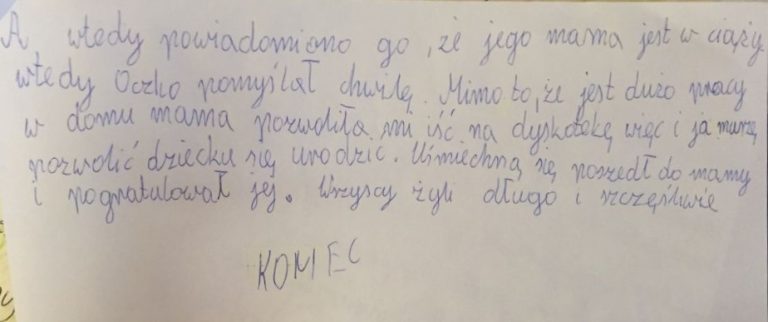 A wtedy powiadomiono go, że jego mama jest w ciąży.
wtedy Oczko pomyślał chwilę. Mimo to, że jest dużo pracy
w domu mama pozwoliła mi iść na dyskotekę więc i ja muszę
pozwolić dziecku się urodzić. Uśmiechną się poszedł do mamy
i pogratulował jej. Wszyscy żyli długo i szczęśliwie
KONIEC